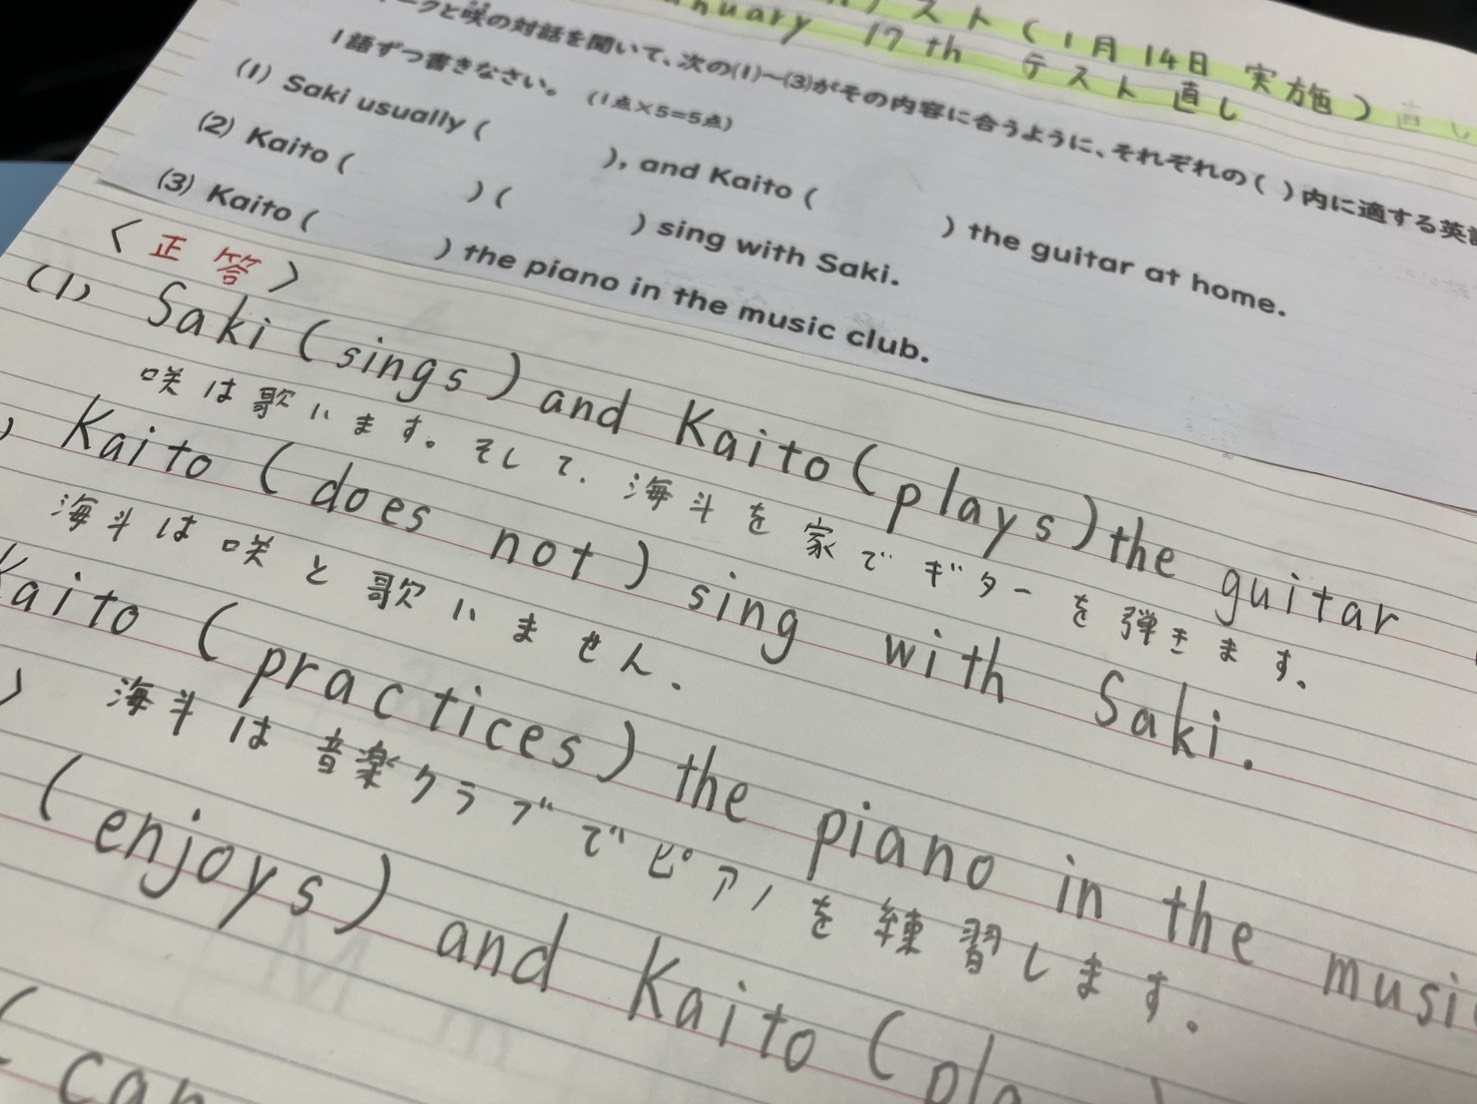 テスト(1月14日 実施)
January 17th テスト直し
ークと咲の対話を聞いて、次の(1)〜(3)がその内容に合うように、それぞれの( )内に適する英語
1語ずつ書きなさい。 (1点×5=5点)
(1) Saki usually ( ), and Kaito ( ) the guitar at home.
(2) Kaito ( ) ( ) sing with Saki.
(3) Kaito ( ) the piano in the music club.
<正答>
(1) Saki (sings) and Kaito (plays) the guitar
咲は歌います。そして、海斗を家でギターを弾きます。
) Kaito (does not) sing with Saki.
海斗は咲と歌いません。
Kaito (practices) the piano in the musi
海斗は音楽クラブでピアノを練習します。
(enjoys) and Kaito (pla
( can